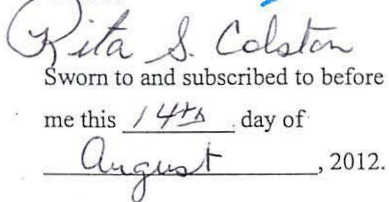 Rita S. Colston
Sworn to and subscribed to before
me this 14th day of
August, 2012.